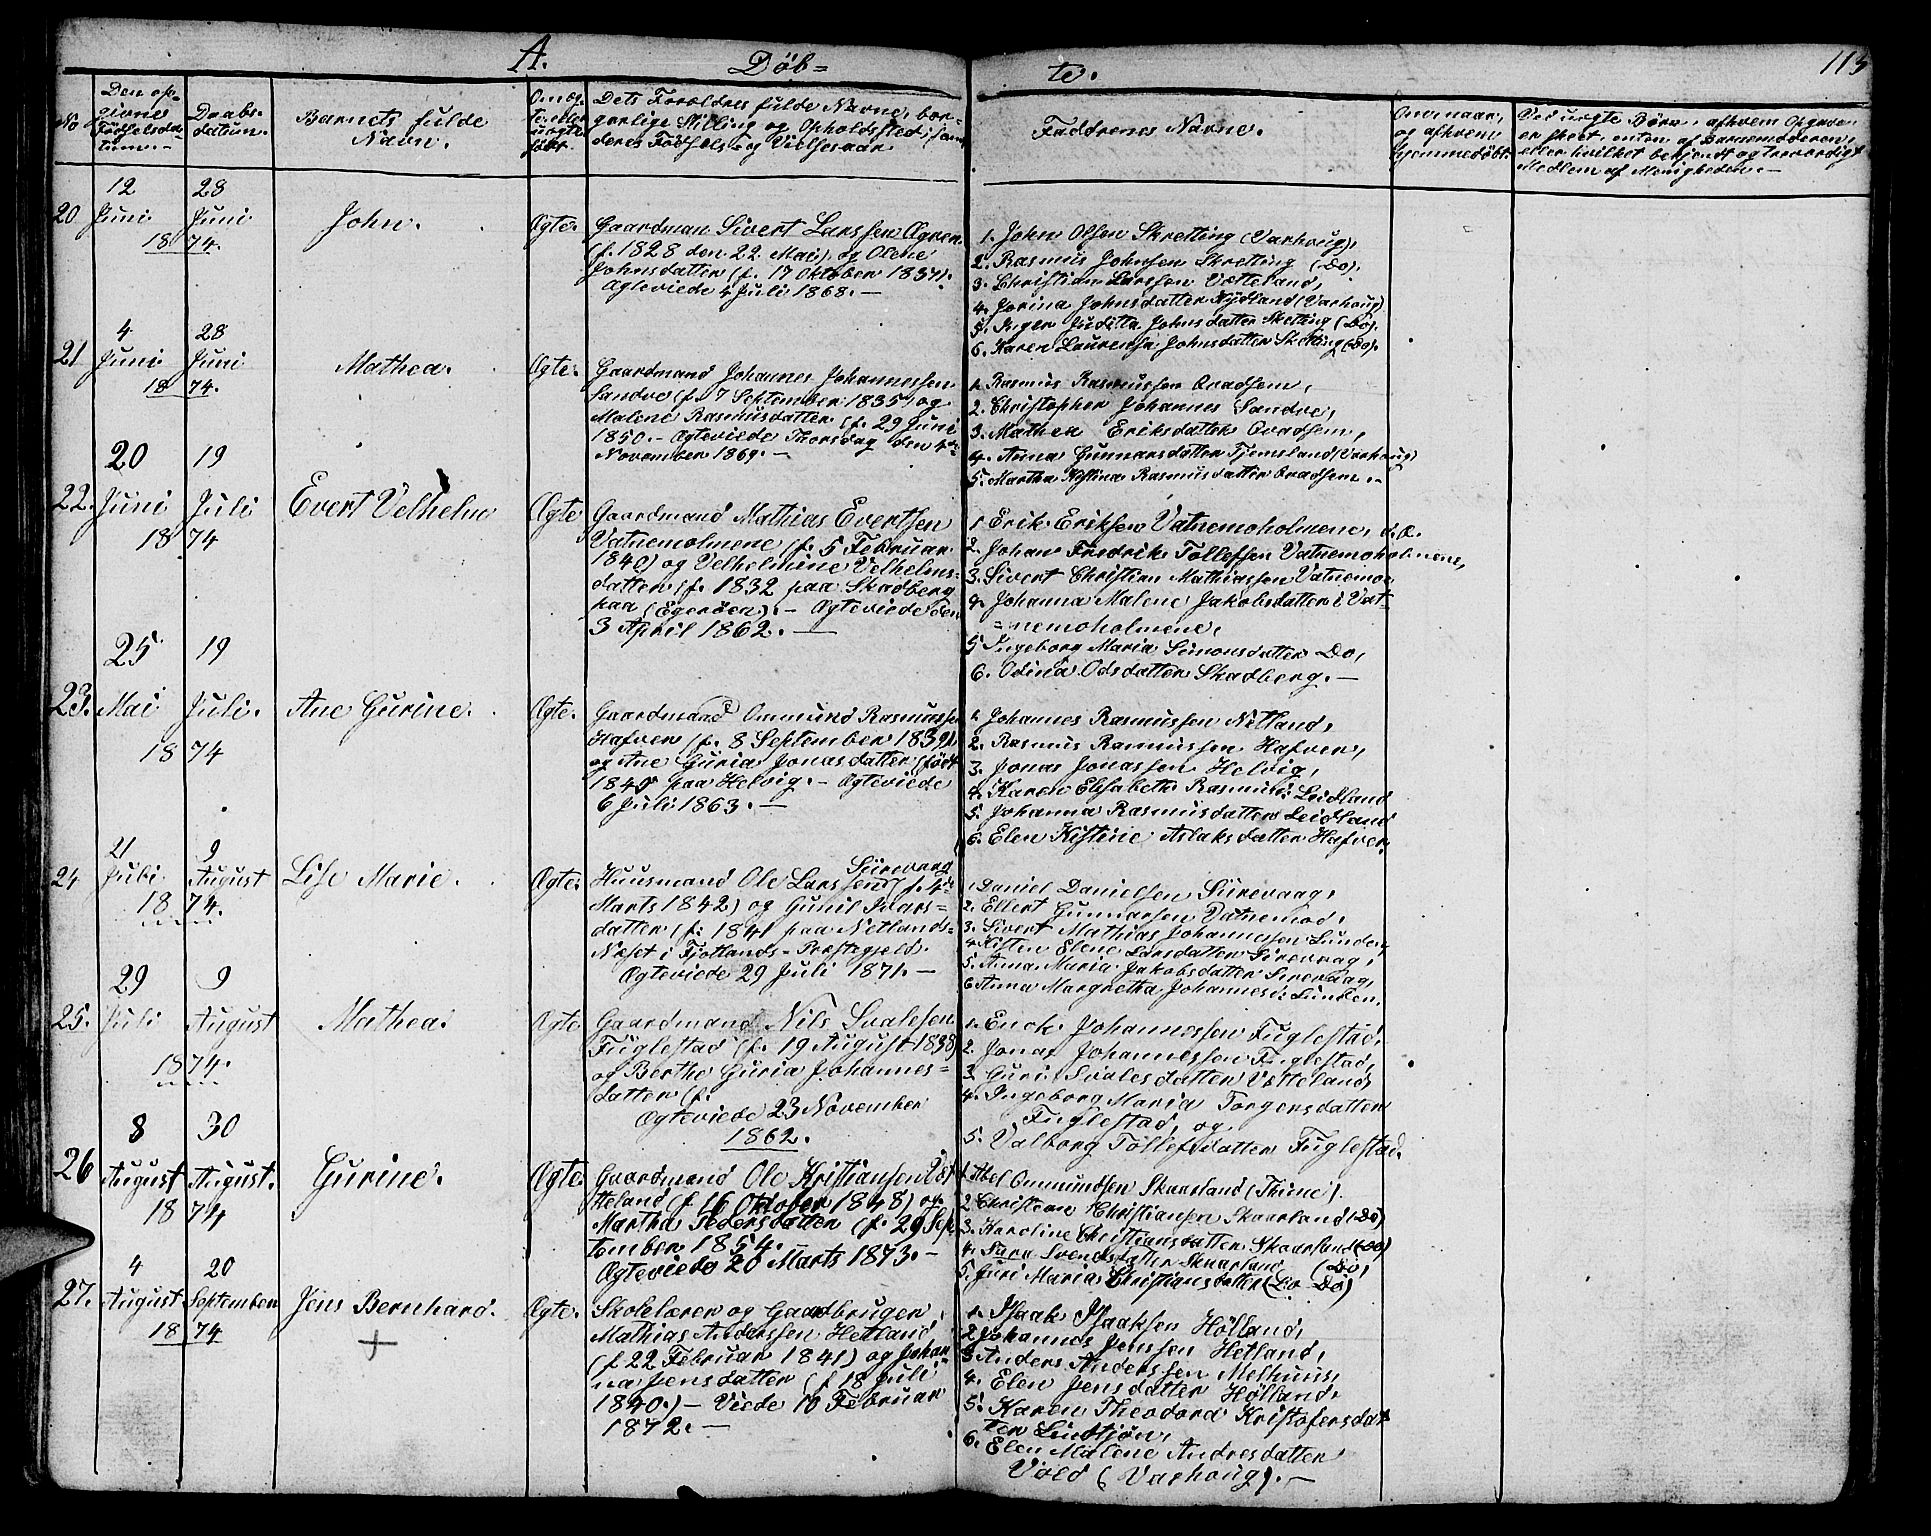 A. Døb= te. 113
No
Den op-
givne
Fødselsda-
tum.-
Daabs-
datum.
Barnets fulde
Navn.
Om æg-
te eller
uægte
født.
Dets Forældres fulde Navne, bor-
gerlige Stilling og Opholdssted, sam
deres Fødsels- og Vielsesaar.
Faddrenes Navne.
Om, naar,
og af hvem
hjemmedøbt.
Ved uægte Børn, af hvem Opgave
er skeet, enten af Barnemoderen,
eller hvilket bekjendt og troværdigt
Medlem af Menigheden.-
20
12
Juni
18
28
Juni
74.
John.
Ægte.
Gaardman Sivert Larssen Ognen
(f. 1828 den 22 Mai) og Olene
Johnsdatter (f. 17 Oktober 1837).
Ægteviede 4 Juli 1868.-
1. John Olsen Skretting (Varhoug),
2. Rasmus Johnsen Skretting (Do),
3. Christian Larssen Vetteland,
4. Jorina Johnsdatter Nydland (Varhoug)
5. Inger Juditta Johnsdatter Sketting (Do),
6. Karen Laurensa Johnsdatter Sketting (Do).
21
4
Juni
18
28
Juni
74.
Mathea.
Ægte.
Gaardmand Johannes Johannessen
Sandve (f. 7 September 1835) og
Malene Rasmusdatter (f. 29 Juni
1850.- Ægteviede Thorsdag den 4de
November 1869.-
1. Rasmus Rasmussen Qvadsem,
2. Christopher Johannes Sandve,
3. Mathea Eriksdatter Qvadsem,
4. Anna Gunnarsdatter Tjemsland (Varhoug)
5. Martha Kistina Rasmusdatter Qvadsem.-
22.
20
Juni
18
19
Juli
74
Evert Velhelm
Ægte
Gaardmand Mathias Evertsen
Vatnemolmene (f. 5 Februar
1840) og Velhelmine Velhelms=
datter (f. 1832 paa Skadberg
paa (Egerøen).- Ægteviede den
3 April 1862.-
1 Erik Eriksen Vatnemoholmene, d.Æ.
2. Johan Fredrik Tollefsen Vatnemoholmene,
3. Sivert Christian Mathiassen Vatnemo,
4. Johanna Malene Jakobsdatter i Vat-
=nemoholmene,
5 Ingeborg Maria Simonsdatter Do,
6. Odina Odsdatter Skadberg.-
23.
25
Mai
18
19
Juli.
74
Ane Gurine.
Ægte.
Gaardmand Ommund Rasmussen
Hafver (f. 8 September 1839)
og Ane Guria Jonasdatter (født
1840 paa Helvig.- Ægteviede
6 Juli 1863.-
1. Johannes Rasmussen Netland,
2. Rasmus Rasmussen Hafver,
3. Jonas Jonassen Helvig,
4. Karen Elisabeth Rasmusd: Leidland
5. Johanna Rasmusdatter Leidland
6. Elen Kistine Aslaksdatter Hafver.
24
21
Juli
18
9
August
74.
Lise Marie.
Ægte.
Siirevaag
Huusmand Ole Larssen (f. 4de
Marts 1842) og Gunil Ivars=
datter (f. 1841 paa Netland=
Neset i Fjotlands- Præstegjeld.
Ægteviede 29 Juli 1871.-
1. Daniel Danielsen Siirevaag,
2. Ellert Gunnarsen Vatnemoe,
3. Sivert Mathias Johannessen Lunden,
4. Kisten Elene Larsdatter Sirevaag,
5. Anna Maria Jakobsdatter Sirevaag,
6 Anna Margretha Johannesd: Lunden.
25.
29
Juli
18
9
August
74.
Mathea.
Ægte
Gaardmand Nils Svalesen
Fuglestad (f. 19 August 1838)
og Berthe Guria Johannes=
datter (f.
Ægteviede 23 November
1862.
1. Enok Johannessen Fuglestad,
2. Jonas Johannessen Fuglestad,
3 Guri Svalesdatter Vetteland
4. Ingeborg Maria Torgersdatter
Fuglestad, og
5. Valborg Tollefsdatter Fuglestad.
26
8
August
18
30
August.
74
Gurine.
Ægte.
Gaardmand Ole Kristiansen Øst
Heland (f. 16 Oktober 1848) og
Martha Pedersdatter (f. 29 Sep-
tember 1854.
Ægteviede 20 Marts 1873.-
1 Abel Ommundsen Skaarland (Thime).
2 Christian Christiansen Skaarland (Do)
3. Karoline Christiansdatter Skaarland (Do)
4. Svendsdatter Skaarland (Do)
5. Juri Maria Christiansdatter (Do Do)
27.
4
August
18
20
September
74
Jens Bernhard.
+
Ægte.
Skolelærer og Gaardbruger
Mathias Anderssen Hetland,
(f. 22 Februar 1841) og Johan-
na Jensdatter (f 18 Juli
1840.)- Viede 10 Februar
1872.-
1. Isaak Isaksen Hølland,
2 Johannes Jenssen Hetland,
3 Anders Anderssen Melhuus,
4. Elen Jensdatter Hølland,
5. Karen Theodora Kristofersdat
ter Lindtjøn,
6. Elen Malene Andresdatter
Vold (Varhoug).-